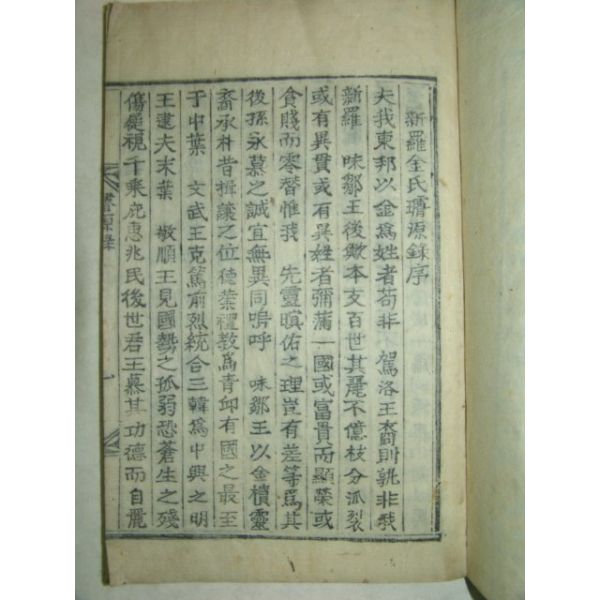 新羅金氏璿源錄序
夫我東邦以金爲姓者苟非 駕洛王裔則孰非我
新羅 味鄒王後歟本支百世其麗不億枝分派裂
或有異貫或有異姓者彌滿一國或富貴而顯榮或
貧賤而零替惟我 先靈暝佑之理豈有差等爲其
後孫永慕之誠宜無異同嗚呼 味鄒王以金櫝靈
裔承朴昔揖讓之位德業禮敎爲靑邱有國之最至
于中葉 文武王克篤前烈統合三韓爲中興之明
王逮夫末葉 敬順王見國勢之孤弱恐蒼生之殘
傷屣視千乘庇惠兆民後世君王慕其功德而自麗
璿源錄
一